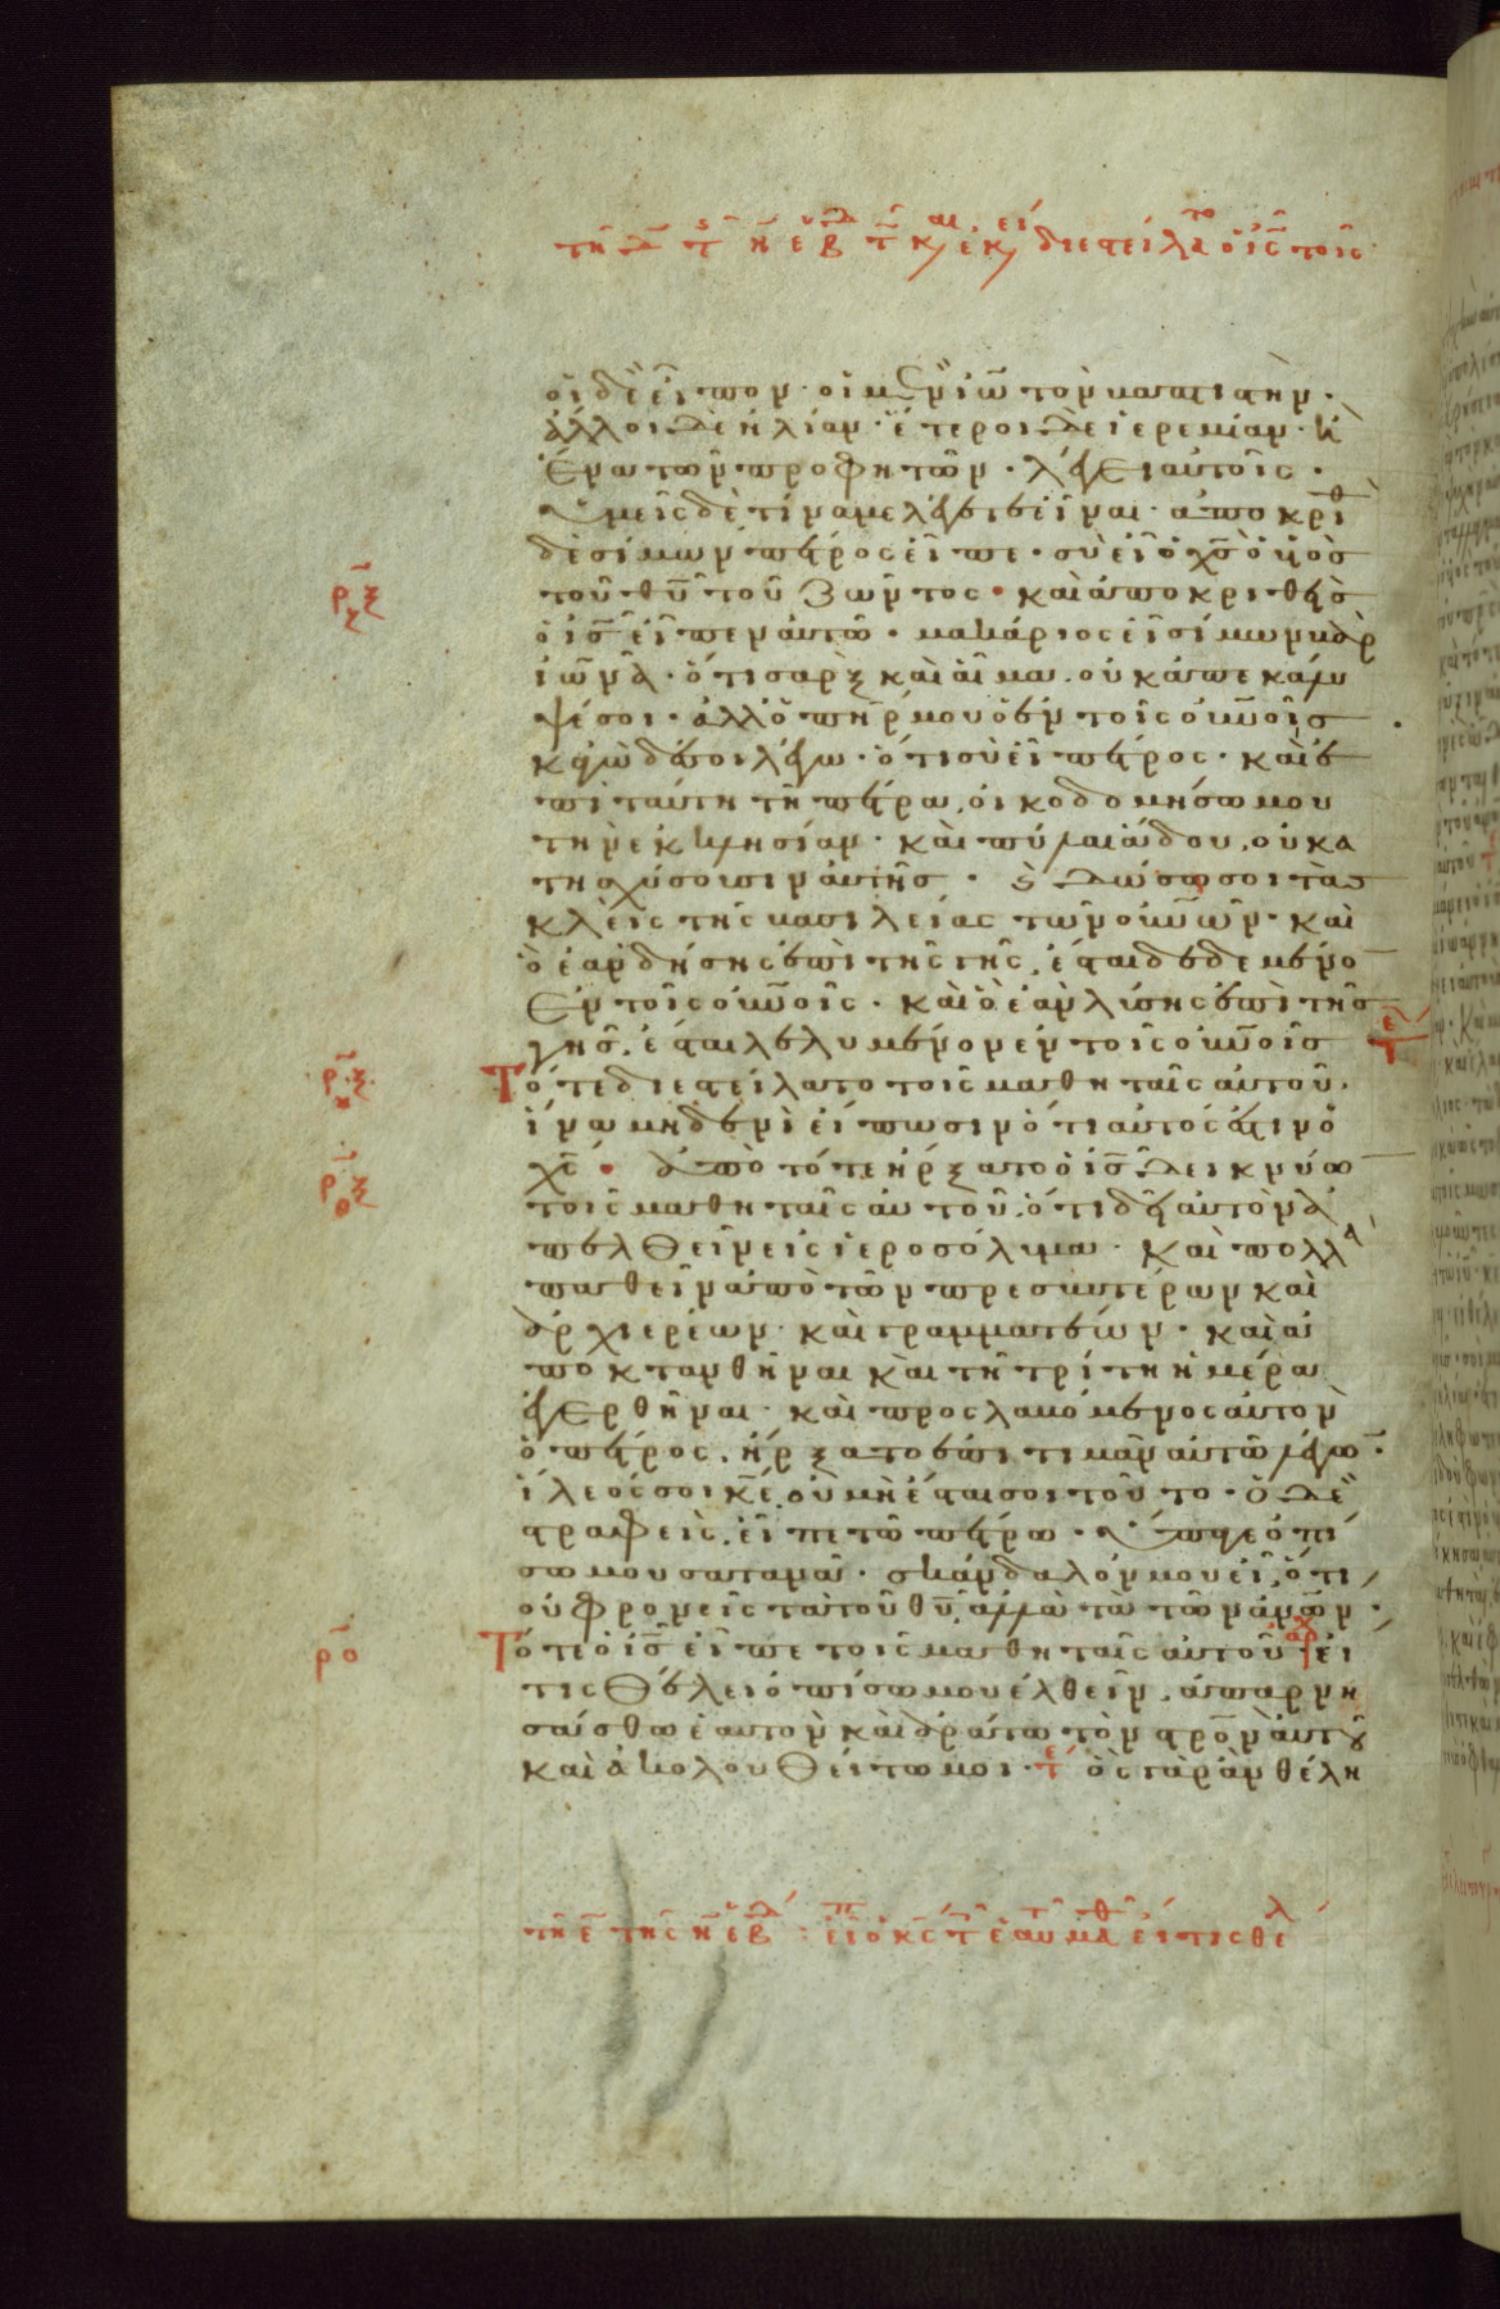 οἱ δὲ εἶπον· οἱ μὲν ἰω̅ τὸν βαπτιστὴν·
ἄλλοι δὲ ἠλίαν· ἕτεροι δὲ ἱερεμίαν· ἢ
ἕνα τῶν προφητῶν· λέγει αὐτοῖς·
ὑμεῖς δὲ τίνα με λέγετε εἶναι· ἀποκριθ
δὲ σίμων πέτρος εἶπε· σὺ εἶ ὁ χ̅ς̅ ὁ υἱὸς
τοῦ θ̅υ̅ τοῦ ζῶντος· καὶ ἀποκριθεὶς
ὁ ἰ̅ς̅ εἶπεν αὐτῶ· μακάριος εἶ σίμων βὰρ
ἰωνᾶ· ὅτι σὰρξ καὶ αἷμα οὐκ ἀπεκάλυ
ψέ σοι· ἀλλ' ὁ π̅η̅ρ̅ μου ὁ ἐν τοῖς ο̅υ̅ν̅οῖς
κἀγὼ δέ σοι λέγω· ὅτι σὺ εἶ πέτρος· καὶ ἐ
πὶ ταύτη τῆ πέτρα, οἰκοδομήσω μου
τὴν ἐκκλησίαν· καὶ πύλαι ἅδου, οὐ κα
τισχύσουσιν αὐτῆς· καὶ δώσω σοι τὰς
κλεῖς τῆς βασιλείας τῶν ο̅υ̅ν̅ῶν· καὶ
ὃ ἐὰν δήσης ἐπὶ τῆς γῆς, ἔσται δεδεμένο
ἐν τοῖς ο̅υ̅ν̅οῖς· καὶ ὃ ἐὰν λύσης ἐπὶ τῆς
γῆς, ἔσται λελυμένον ἐν τοῖς ο̅υ̅ν̅οῖς
ρξζ
ρξη
Τότε διεστείλατο τοῖς μαθηταῖς αὐτοῦ,
ἵνα μηδενὶ εἴπωσιν ὅτι αὐτός ἐστιν ὁ
χ̅ς̅· ἀπὸ τότε ἤρξατο ὁ ἰ̅ς̅ δεικνύω
ρξθ
τοῖς μαθηταῖς αὐτοῦ, ὅτι δεῖ αὐτὸν ἀ
πελθεῖν εἰς ἱεροσόλυμα· καὶ πολλὰ
παθεῖν ἀπὸ τῶν πρεσβυτέρων καὶ
ἀρχιερέων· καὶ γραμματέων· καὶ ἀ
ποκτανθῆναι καὶ τῆ τρίτη ἡμέρα
ἐγερθῆναι· καὶ προσλαβόμενος αὐτὸν
ὁ πέτρος, ἤρξατο ἐπιτιμᾶν αὐτῶ λέγω̅·
ἵλεός σοι κ̅ε̅ οὐ μὴ ἔσται σοι τοῦτο· ὁ δὲ
στραφεὶς, εἶπε τῶ πέτρω· ὕπαγε ὀπί
σω μου σατανᾶ· σκάνδαλόν μου εἶ, ὅτι
οὐ φρονεῖς τὰ τοῦ θ̅υ̅, ἀλλὰ τὰ τῶν α̅ν̅ω̅ν·
ρο
Τότε ὁ ἰ̅ς̅ εἶπε τοῖς μαθηταῖς αὐτοῦ εἴ
τις θέλει ὀπίσω μου ἐλθεῖν, ἀπαρνη
σάσθω ἑαυτὸν καὶ ἀράτω τὸν στρο̅ν αὐτοῦ
καὶ ἀκολουθείτω μοι· ὃς γὰρ ἂν θέλη